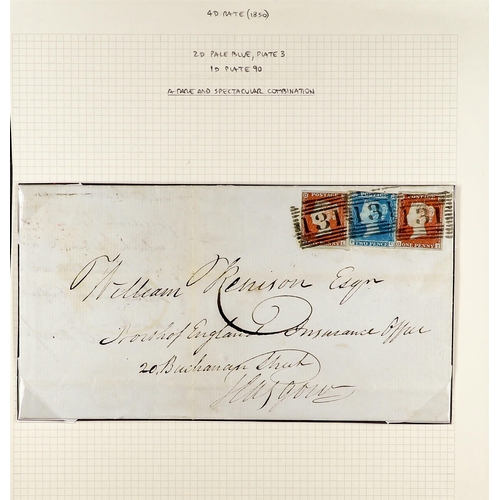 4D RATE (1850)
2D PALE BLUE, PLATE 3
1D PLATE 90
A RARE AND SPECTACULAR COMBINATION
POSTAGE POSTAGE
131 131 131
TWO PENCE ONE PENNY
William Kenison Esqr
North of England Insurance Office
20, Buchanan Street
Glasgow